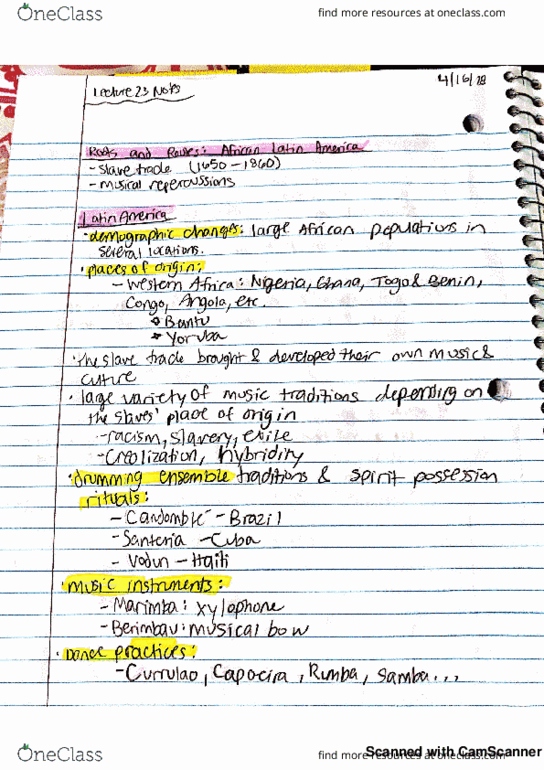 OneClass
find more resources at oneclass.com
Lecture 23 Notes
4/16/28
Roots and Routes: African Latin America
- slave trade (1650 - 1860)
- musical repercussions
Latin America
· demographic changes: large African populations in
several locations.
· places of origin:
- Western Africa: Nigeria, Ghana, Togo & Benin,
Congo, Angola, etc
Bantu
Yoruba
· the slave trade brought & developed their own music &
culture
· large variety of music traditions depending on
the slaves' place of origin
- racism, slavery, exile
- Creolization, hybridity
· drumming ensemble traditions & spirit possession
rituals:
- Candomblé - Brazil
- Santeria - Cuba
- Vodun - Haiti
· music instruments:
- Marimba: xylophone
- Berimbau: musical bow
· Dance practices:
- Currulao, Capoeira, Rumba, Samba...
OneClass
find more resources at oneclass.com
Scanned with CamScanner